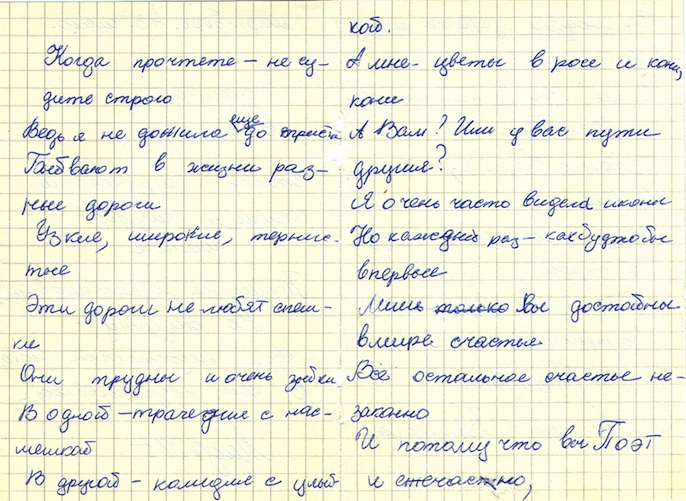 Когда прочтете – не су-
дите строго
Ведь я не дожила еще до триста
Бывают в жизни раз-
ные дороги
Узкие, широкие, тернис-
тые
Эти дороги не любят спеш-
ки
Они трудны и очень зыбки
В одной – трагедия с нас-
мешкой
В другой – комедия с улыб-
кой.
А мне - цветы в росе и кони,
кони
А Вам? Или у вас пути
другия?
Я очень часто видела иконы
Но каждый раз – как будто бы
впервые
Лишь только Вы достойны
в мире счастья
Всё остальное счастье не-
законно
И потому что вы Поэт
и